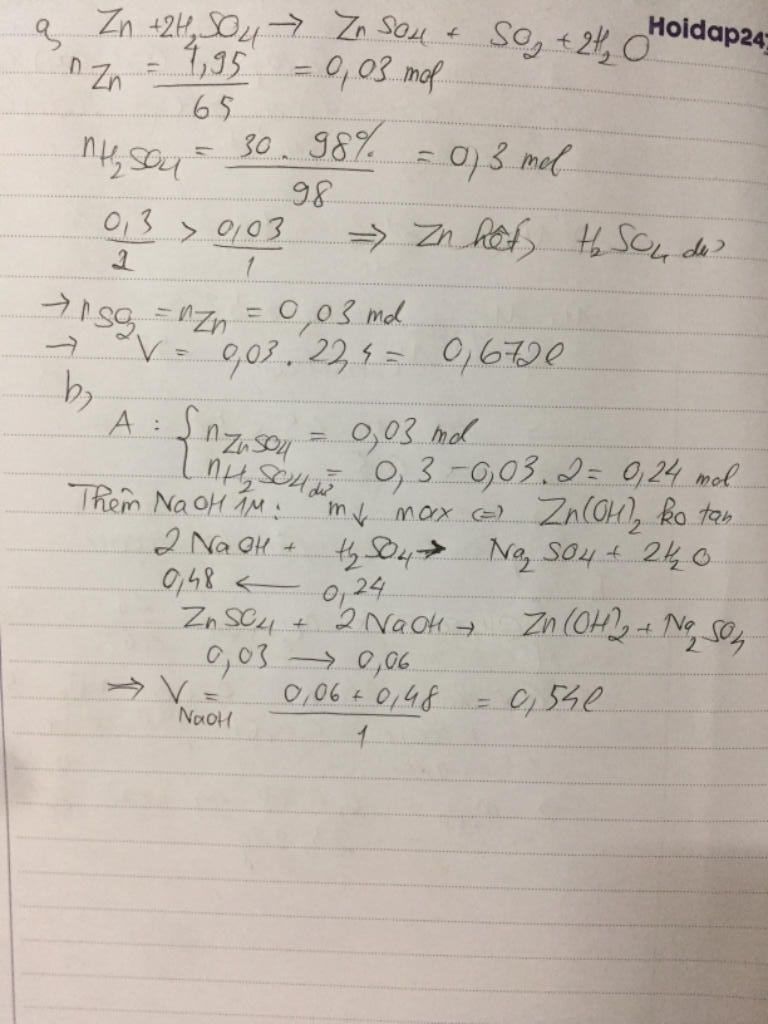 a, Zn + 2H₂SO₄ → ZnSO₄ + SO₂ + 2H₂O
Hoidap247
n Zn = 1,95 / 65 = 0,03 mol
n H₂SO₄ = 30 . 98% / 98 = 0,3 mol
0,3 / 2 > 0,03 / 1 ⇒ Zn hết, H₂SO₄ dư
→ n SO₂ = n Zn = 0,03 mol
→ V = 0,03 . 22,4 = 0,672l
b,
A : { n ZnSO₄ = 0,03 mol
n H₂SO₄ dư = 0,3 - 0,03 . 2 = 0,24 mol
Thêm NaOH 1M : m↓ max ⇔ Zn(OH)₂ ko tan
2 NaOH + H₂SO₄ → Na₂SO₄ + 2H₂O
0,48 ← 0,24
ZnSO₄ + 2 NaOH → Zn(OH)₂ + Na₂SO₄
0,03 → 0,06
⇒ V NaOH = 0,06 + 0,48 / 1 = 0,54l